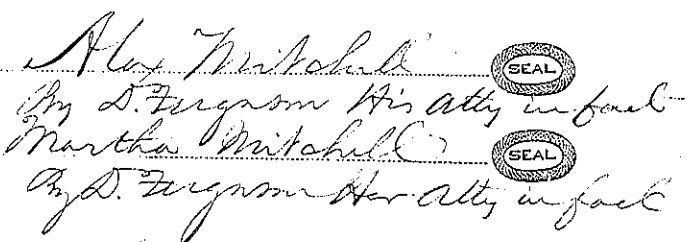 Alex Mitchell SEAL
By D. Ferguson His Atty in fact
Martha Mitchell SEAL
By D. Ferguson Her Atty in fact